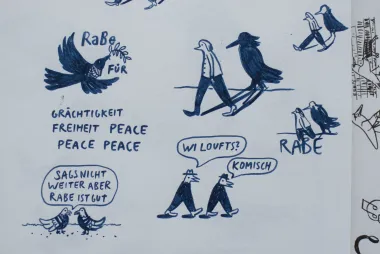 RaBe
FÜR
GRÄCHTIGKEIT
FREIHEIT PEACE
PEACE PEACE
SAGS NICHT
WEITER ABER
RABE IST GUT
WI LOUFTS?
KOMISCH
RABE